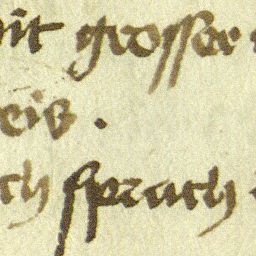 mit grosser
eis .
ch sprach